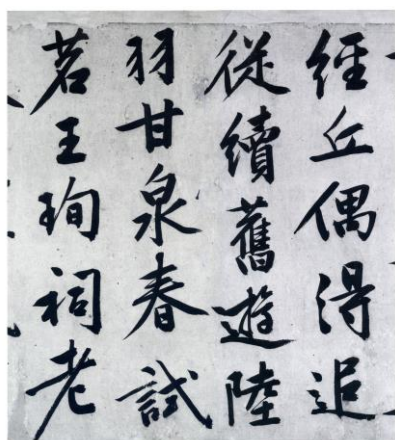 經丘偶得追
從續舊遊陸
羽甘泉春試
茗王珣祠老